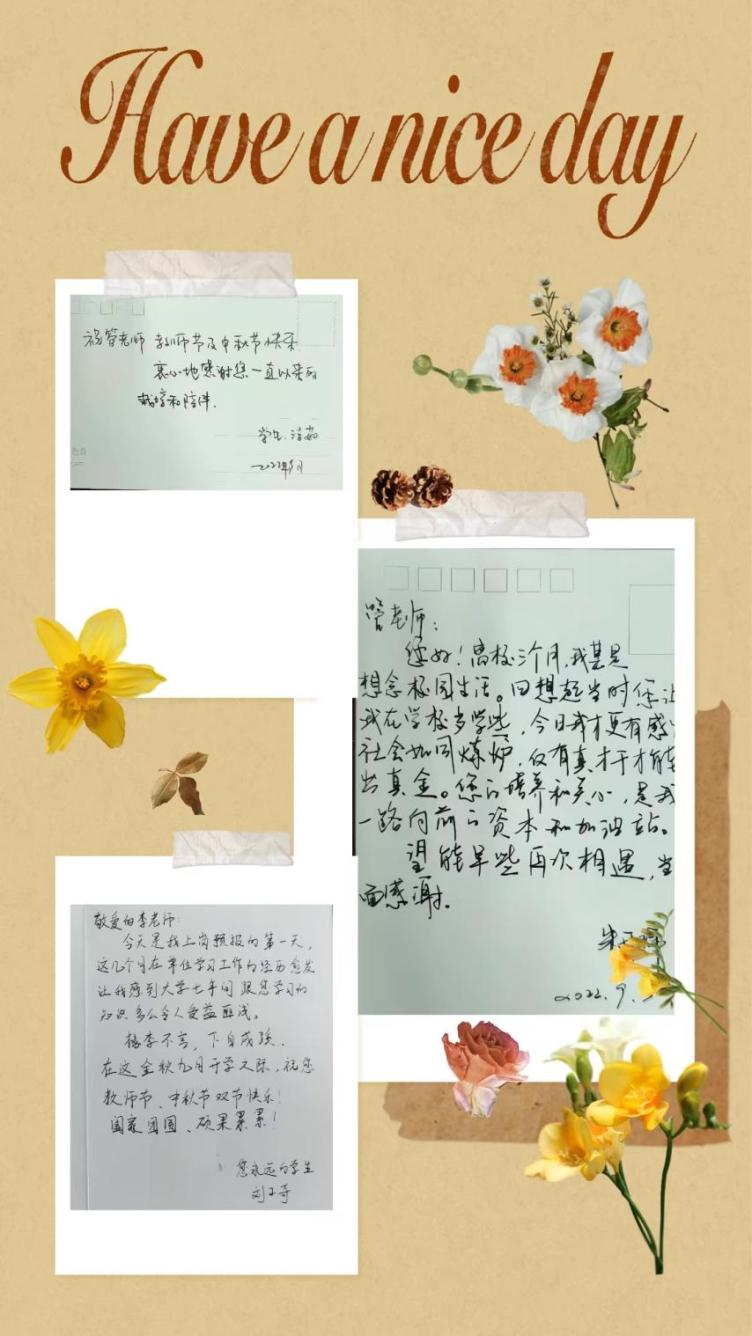 Have a nice day
祝管老师 教师节及中秋节快乐
衷心地感谢您一直以来的
栽培和陪伴.
学生:
2022年9月
管老师:
您好!离校三个月,我甚是
想念校园生活。回想起当时您让
我在学校多学些,今日我才更有感
社会如同炼炉,仅有真才干才能
出真金。您的培养和关心,是我
一路向前的资本和加油站。
望能早些再次相遇,当
面感谢。
2022.9.
敬爱的李老师:
今天是我上岗预报的第一天,
这几个月在单位学习工作的经历愈发
让我感到大学七年间跟您学习的
知识多么令人受益匪浅。
桃李不言,下自成蹊.
在这金秋九月开学之际,祝您
教师节、中秋节双节快乐!
阖家团圆、硕果累累!
您永远的学生